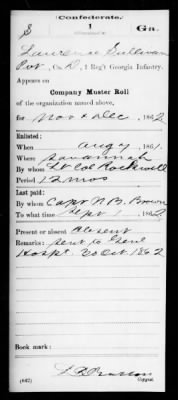 Confederate.
S 1 Ga.
Laurence Sullivan
Pvt, Co. D, 1 Reg't Georgia Infantry.
Appears on
Company Muster Roll
of the organization named above,
for Nov & Dec, 1862
Enlisted:
When Aug 7, 1861.
Where Savannah
By whom Lt Col Rockwell
Period 12 mos
Last paid:
By whom Capt N.B. Brown
To what time Sept 1, 1862
Present or absent Absent
Remarks: Sent to Genl
Hospt. 20 Oct 1862
Book mark:
(642) Copyist.